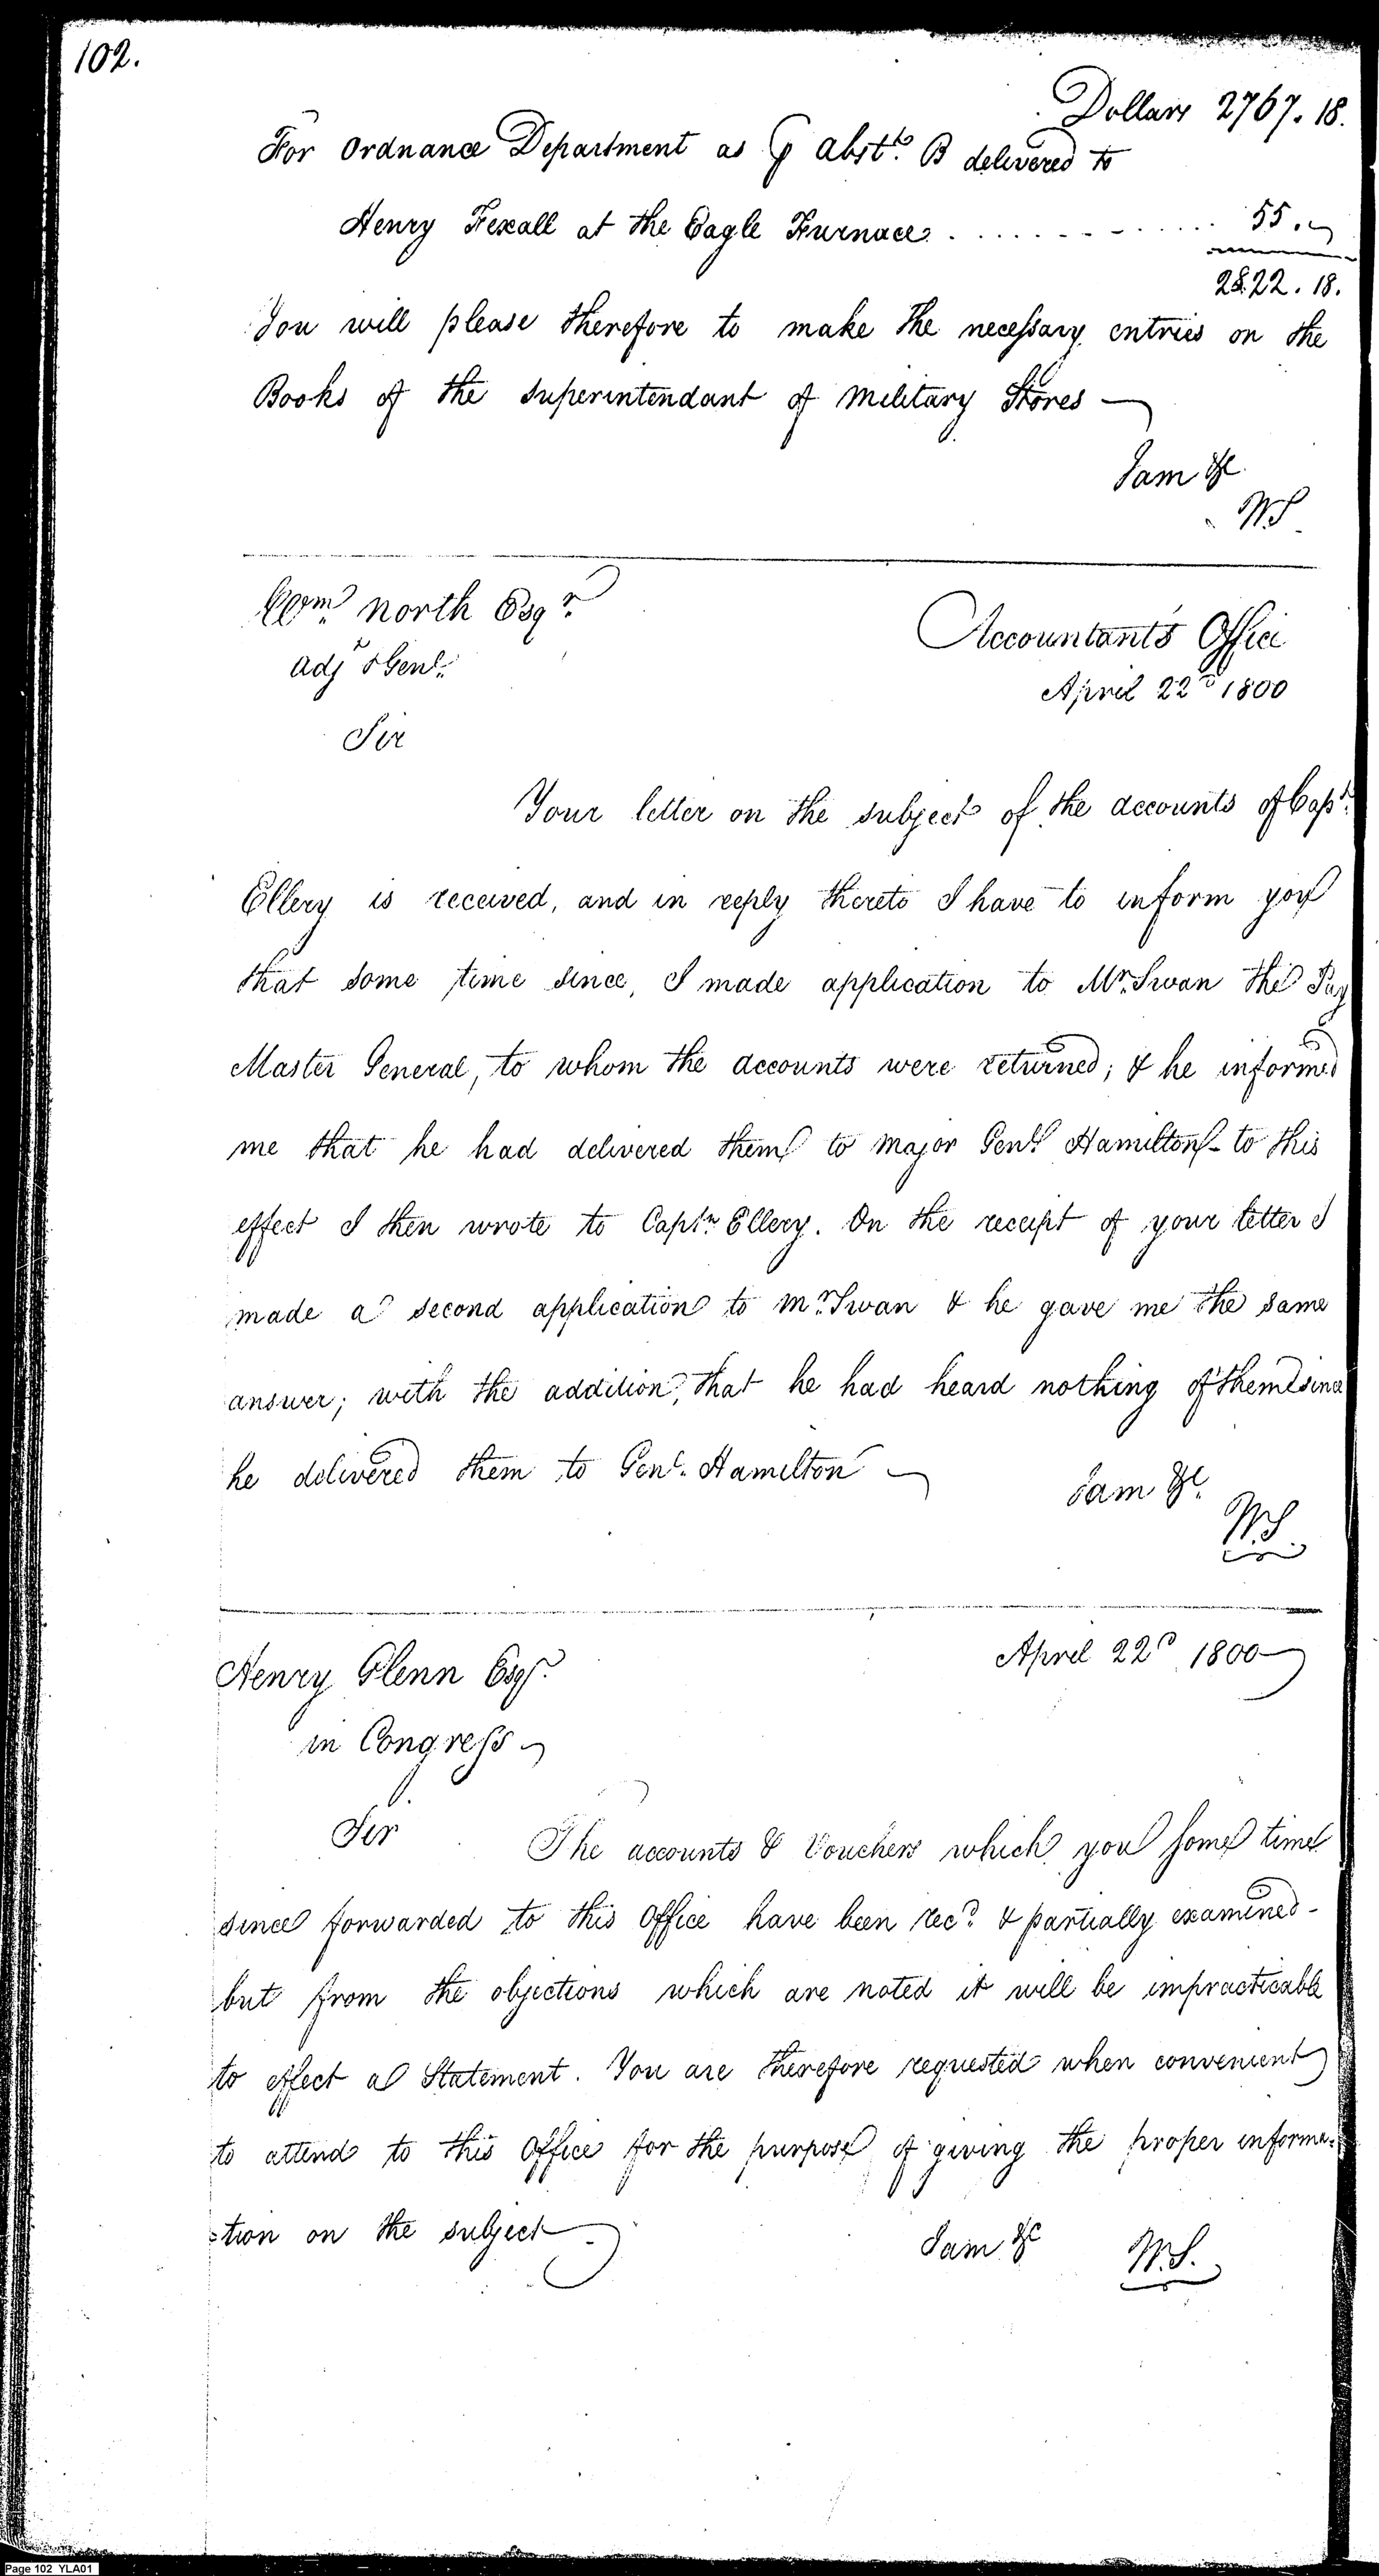 102.
Dollars 2767.18.
For Ordnance Department as ⅌ Abstt. B delivered to
Henry Foxall at the Eagle Furnace . . . . . . . . . . 55.
2822.18.
You will please therefore to make the necessary entries on the
Books of the Superintendant of Military Stores —
I am &c
WS
Wm. North Esqr.
Adjt. Genl.
Accountant's Office
April 22d 1800
Sir
Your letter on the subject of the accounts of Capt.
Ellery is received, and in reply thereto I have to inform you
that some time since, I made application to Mr. Swan the Pay
Master General, to whom the accounts were returned; & he informed
me that he had delivered them to Major Genl. Hamilton - to this
effect I then wrote to Captn. Ellery. On the receipt of your letter I
made a second application to Mr. Swan & he gave me the same
answer; with the addition, that he had heard nothing of them since
he delivered them to Genl. Hamilton —
I am &c.
W.S.
Henry Glenn Esqr.
April 22d 1800
in Congress
Sir
The accounts & Vouchers which you some time
since forwarded to this Office have been recd. & partially examined -
but from the objections which are noted it will be impracticable
to effect a Statement. You are therefore requested when convenient
to attend to this Office for the purpose of giving the proper informa-
-tion on the subject
I am &c
W.S.
Page 102 YLA01